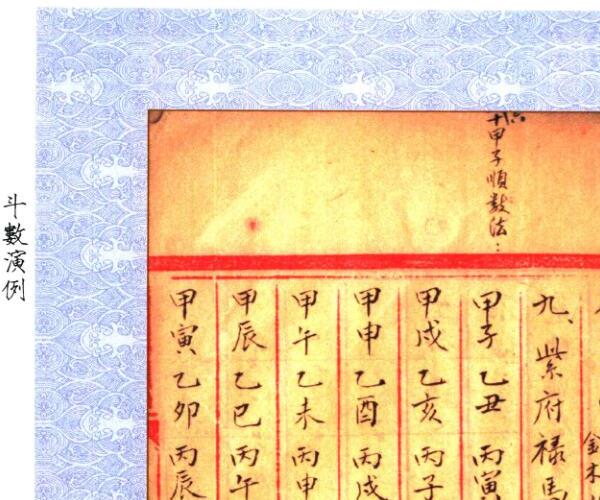 六十甲子順數法：
金木
九、紫府祿馬
甲子乙丑丙寅
甲戌乙亥丙子
甲申乙酉丙戌
甲午乙未丙申
甲辰乙巳丙午
甲寅乙卯丙辰
斗數演例